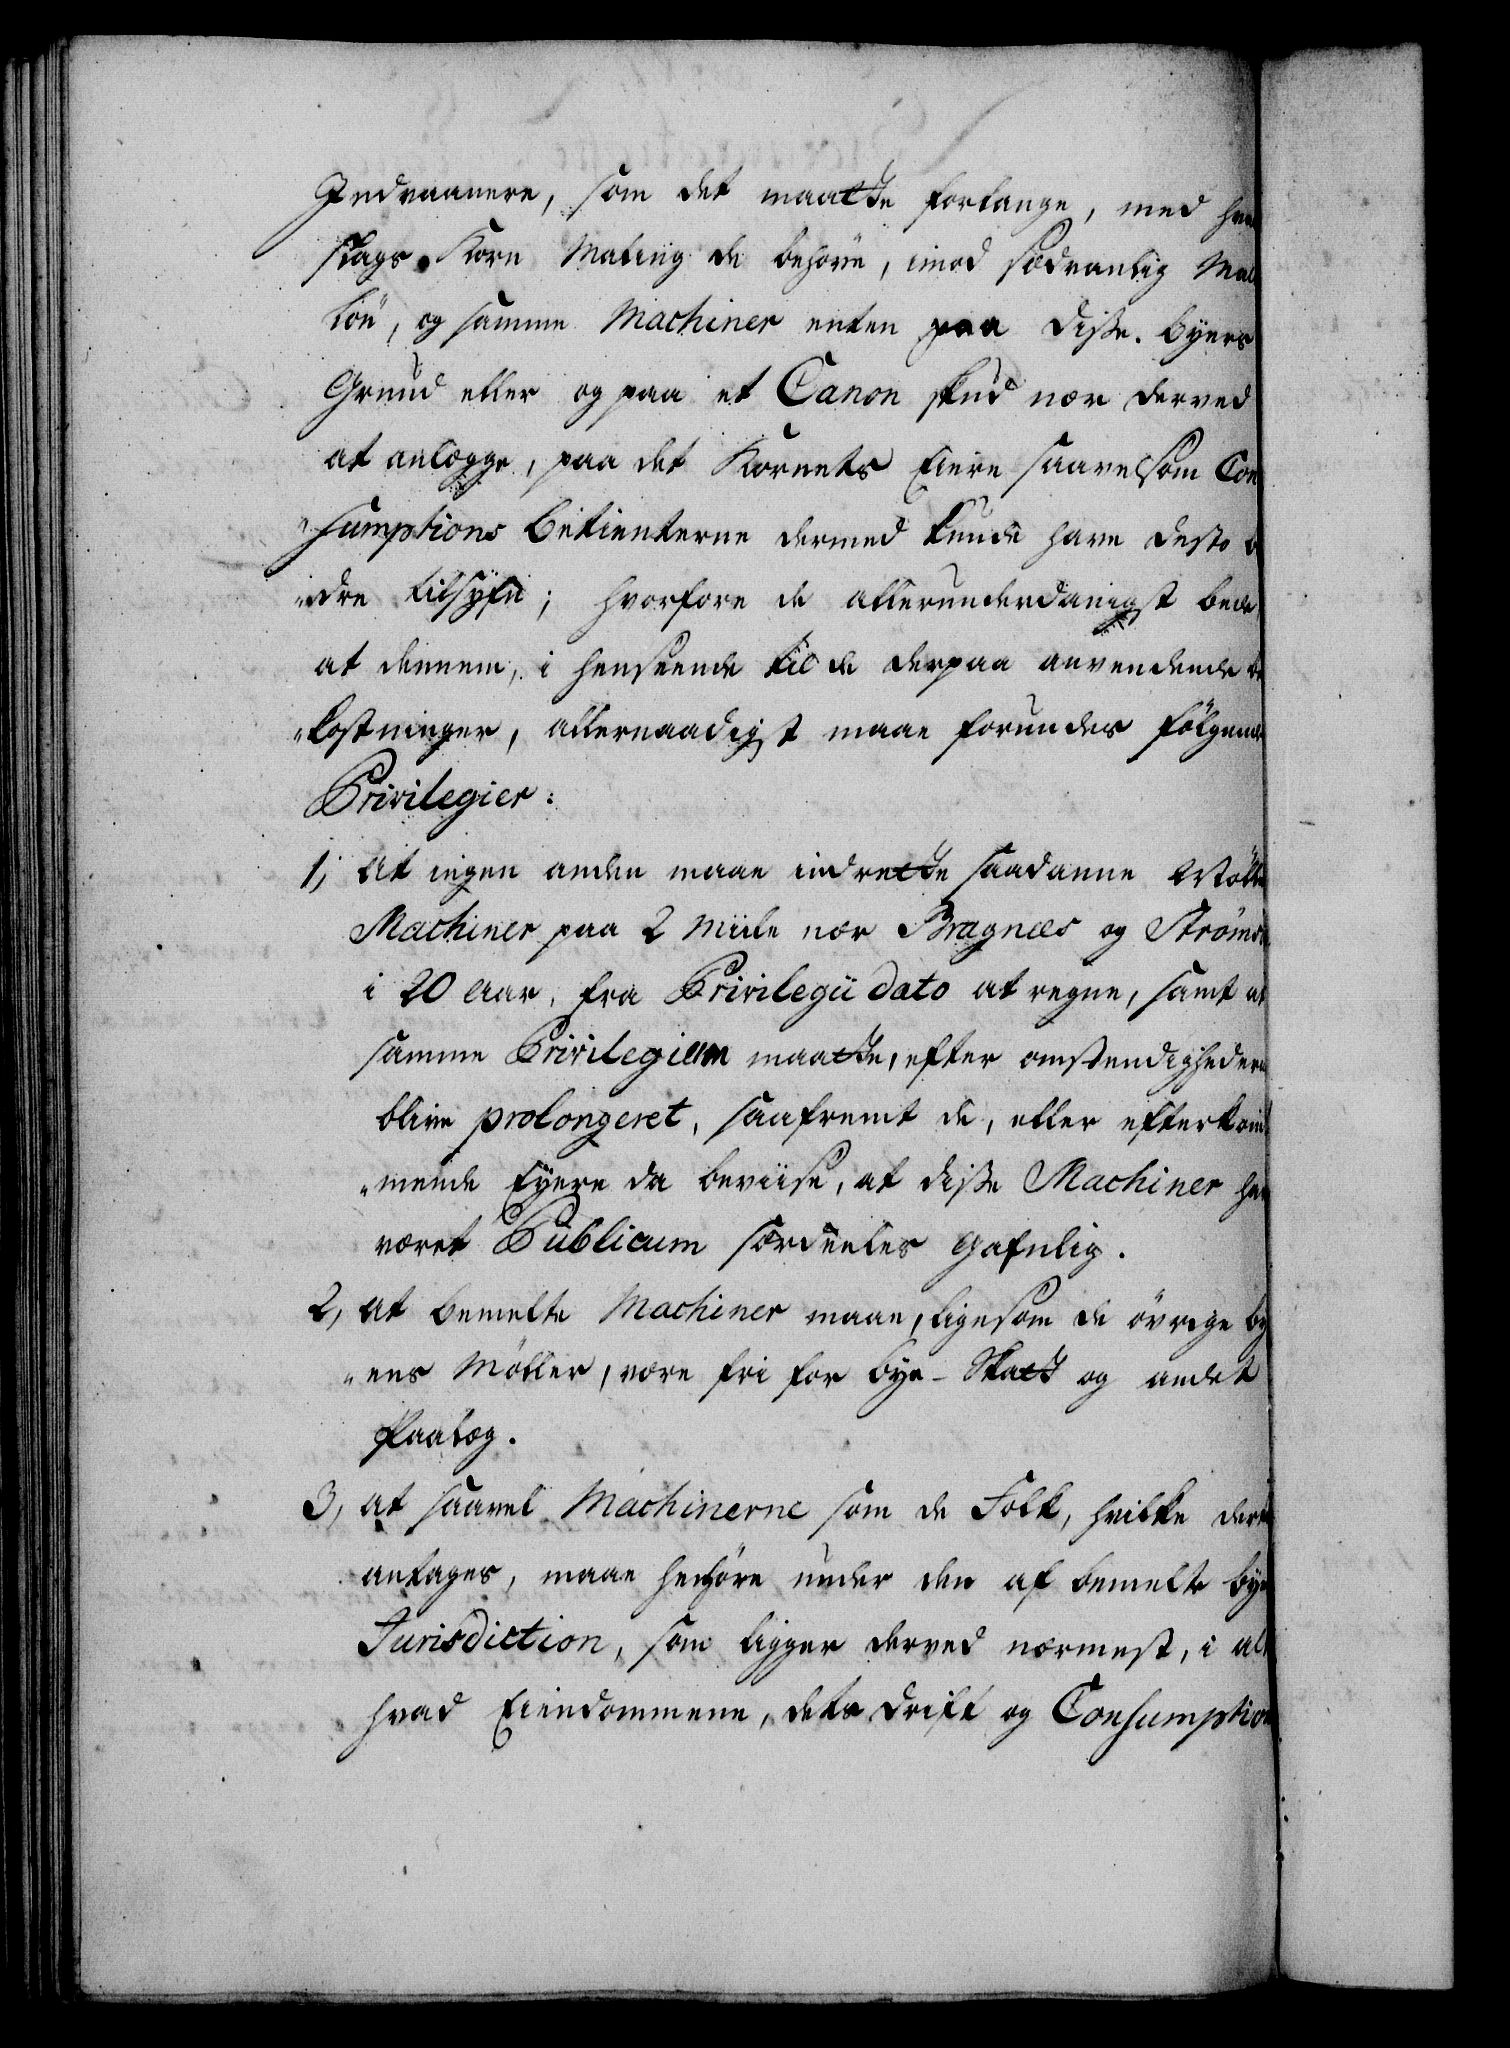 Indvaanere, som det maatte forlange, med hva
slags Korn Maling de behøve, imod sædvanlig Mal
løn, og samme Machiner enten paa disse Byers
Grund eller og paa et Canon skud nær derved
at anlægge, paa det Kornets Eiere saavelsom Con
sumptions Betienterne dermed kunde have desto b
„dre tilsyn; hvorfore de allerunderdanigst bede
at dennem, i henseende til de derpaa anvendende be
„kostninger, allernaadigst maae forundes følgende
Privilegier:
1, At ingen anden maae indrette saadanne Mølle
Machiner paa 2 Miile nær Bragnæs og Strømsø
i 20 Aar, fra Privilegii dato at regne, samt at
samme Privilegium maatte, efter omstændighedern
blive prolongeret, saafremt de, eller efterkom
„mende Eyere da beviise, at disse Machiner hav
været Publicum særdeeles gafnlig.
2, at bemelte Machiner maae, ligesom de øvrige By
„ens Møller, være fri for bye-Skatt og andet
Paalæg.
3, at saavel Machinerne som de Folk, hvilke der
antages, maae henhøre under den af bemelte Bye
Jurisdiction, som ligger derved nærmest, i alt
hvad Eiendommene, dets drift og Consumption